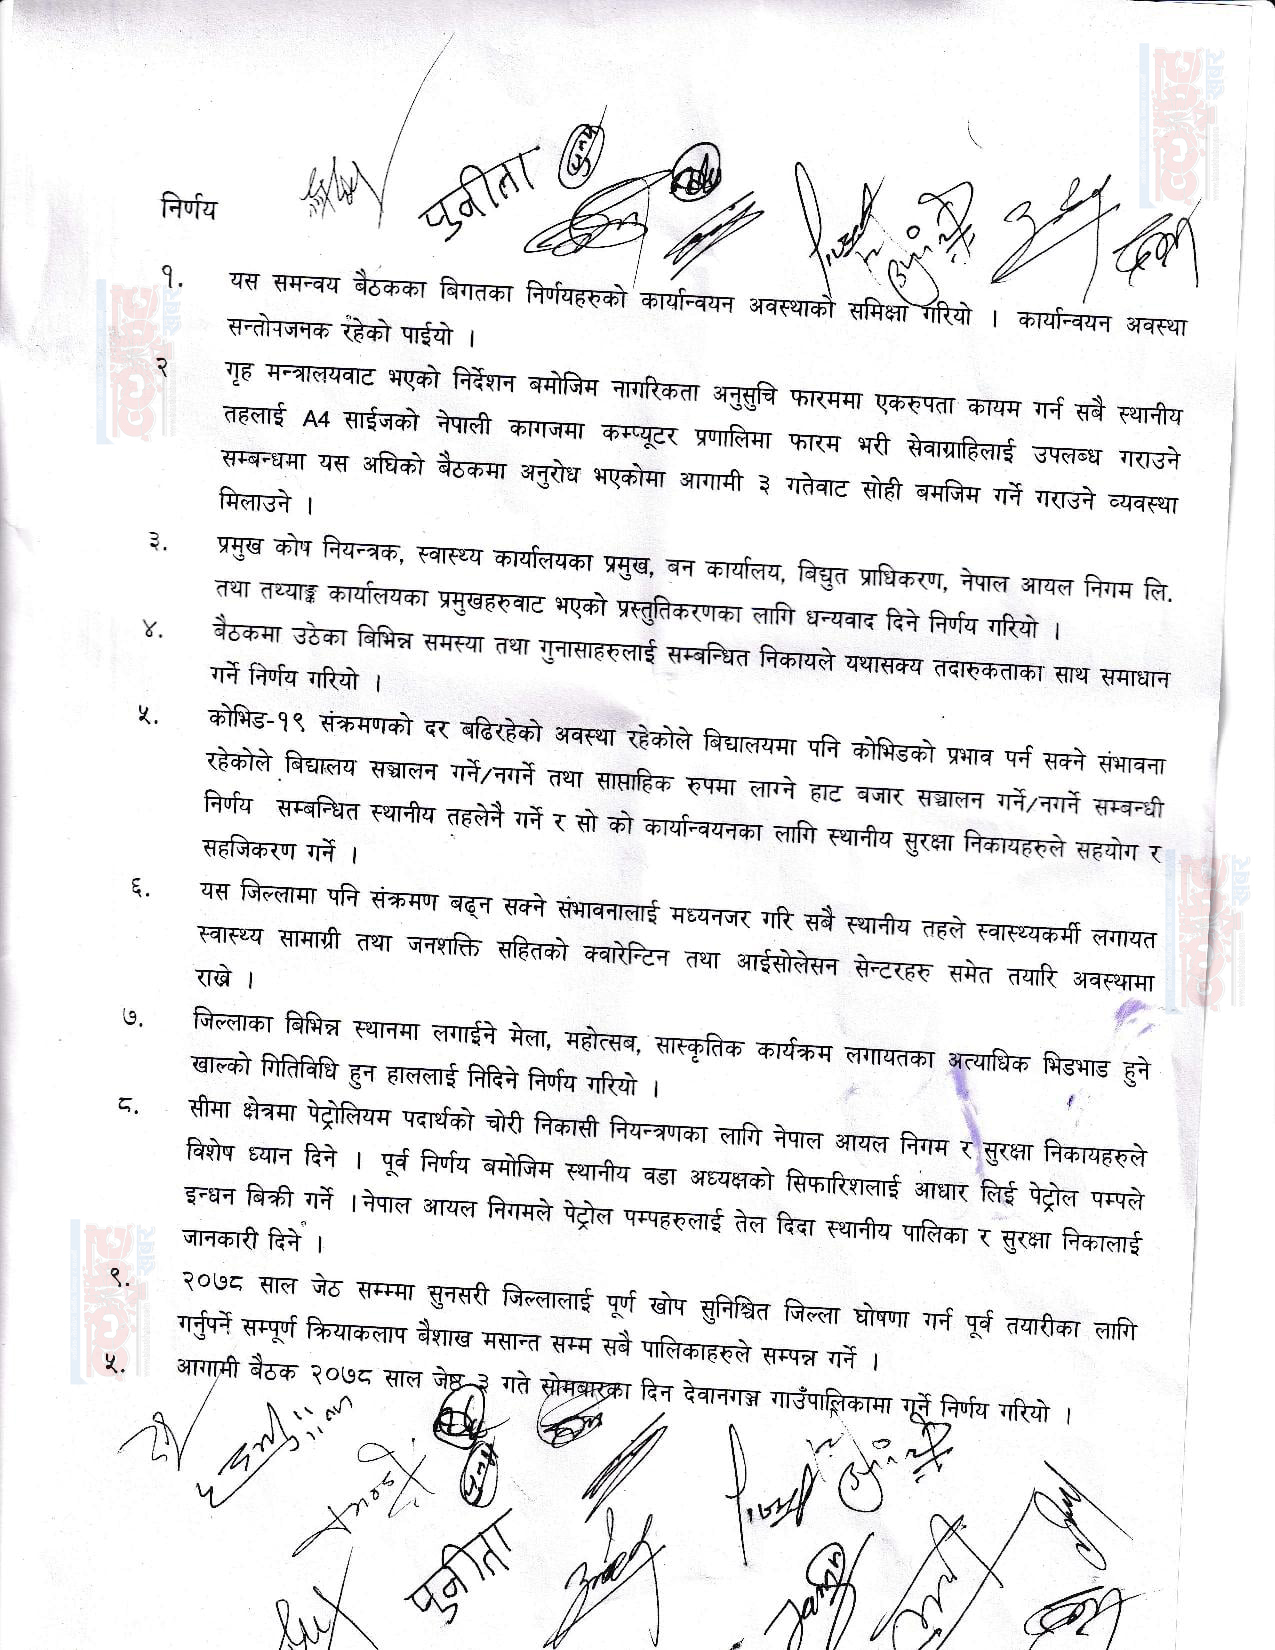 पुनीता
निर्णय
१. यस समन्वय बैठकका बिगतका निर्णयहरुको कार्यान्वयन अवस्थाको समिक्षा गरियो । कार्यान्वयन अवस्था
सन्तोषजनक रहेको पाईयो ।
२ गृह मन्त्रालयवाट भएको निर्देशन बमोजिम नागरिकता अनुसुचि फारममा एकरुपता कायम गर्न सबै स्थानीय
तहलाई A4 साईजको नेपाली कागजमा कम्प्यूटर प्रणालिमा फारम भरी सेवाग्राहिलाई उपलब्ध गराउने
सम्बन्धमा यस अघिको बैठकमा अनुरोध भएकोमा आगामी ३ गतेवाट सोही बमजिम गर्ने गराउने व्यवस्था
मिलाउने ।
३. प्रमुख कोष नियन्त्रक, स्वास्थ्य कार्यालयका प्रमुख, बन कार्यालय, बिद्युत प्राधिकरण, नेपाल आयल निगम लि.
तथा तथ्याङ्क कार्यालयका प्रमुखहरुवाट भएको प्रस्तुतिकरणका लागि धन्यवाद दिने निर्णय गरियो ।
४. बैठकमा उठेका बिभिन्न समस्या तथा गुनासाहरुलाई सम्बन्धित निकायले यथासक्य तदारुकताका साथ समाधान
गर्ने निर्णय गरियो ।
५. कोभिड-१९ संक्रमणको दर बढिरहेको अवस्था रहेकोले बिद्यालयमा पनि कोभिडको प्रभाव पर्न सक्ने संभावना
रहेकोले बिद्यालय सञ्चालन गर्ने/नगर्ने तथा साप्ताहिक रुपमा लाग्ने हाट बजार सञ्चालन गर्ने/नगर्ने सम्बन्धी
निर्णय सम्बन्धित स्थानीय तहलेनै गर्ने र सो को कार्यान्वयनका लागि स्थानीय सुरक्षा निकायहरुले सहयोग र
सहजिकरण गर्ने ।
६. यस जिल्लामा पनि संक्रमण बढ्न सक्ने संभावनालाई मध्यनजर गरि सबै स्थानीय तहले स्वास्थ्यकर्मी लगायत
स्वास्थ्य सामाग्री तथा जनशक्ति सहितको क्वारेन्टिन तथा आईसोलेसन सेन्टरहरु समेत तयारि अवस्थामा
राख्ने ।
७. जिल्लाका बिभिन्न स्थानमा लगाईने मेला, महोत्सब, सास्कृतिक कार्यक्रम लगायतका अत्याधिक भिडभाड हुने
खाल्को गितिविधि हुन हाललाई निदिने निर्णय गरियो ।
८. सीमा क्षेत्रमा पेट्रोलियम पदार्थको चोरी निकासी नियन्त्रणका लागि नेपाल आयल निगम र सुरक्षा निकायहरुले
विशेष ध्यान दिने । पूर्व निर्णय बमोजिम स्थानीय वडा अध्यक्षको सिफारिशलाई आधार लिई पेट्रोल पम्पले
इन्धन बिक्री गर्ने ।नेपाल आयल निगमले पेट्रोल पम्पहरुलाई तेल दिदा स्थानीय पालिका र सुरक्षा निकालाई
जानकारी दिने ।
९. २०७८ साल जेठ सम्म्मा सुनसरी जिल्लालाई पूर्ण खोप सुनिश्चित जिल्ला घोषणा गर्न पूर्व तयारीका लागि
गर्नुपर्ने सम्पूर्ण क्रियाकलाप बैशाख मसान्त सम्म सबै पालिकाहरुले सम्पन्न गर्ने ।
५. आगामी बैठक २०७८ साल जेष्ठ ३ गते सोमबारका दिन देवानगञ्ज गाउँपालिकामा गर्ने निर्णय गरियो ।
पुनीता